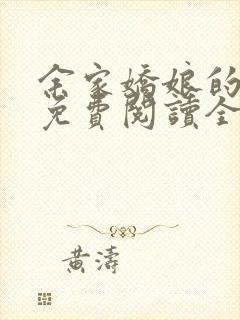 余家嬌娘的
免費閱讀全
黃濤